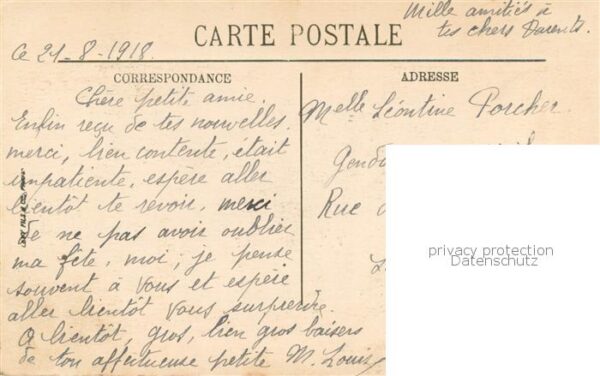 Mille amitiés à
tes chers Parents.
Ce 21-8-1918.
CARTE POSTALE
CORRESPONDANCE
ADRESSE
Chère petite amie.
Enfin reçu de tes nouvelles.
merci, bien contente, était
impatiente, espère aller
bientôt te revoir, merci
de ne pas avoir oublier
ma fête, moi, je pense
souvent à vous et espère
aller bientôt vous surprendre.
A bientôt, gros, bien gros baisers
de ton affectueuse petite M. Louise
Melle Léontine Porcher
Rue
privacy protection
Datenschutz